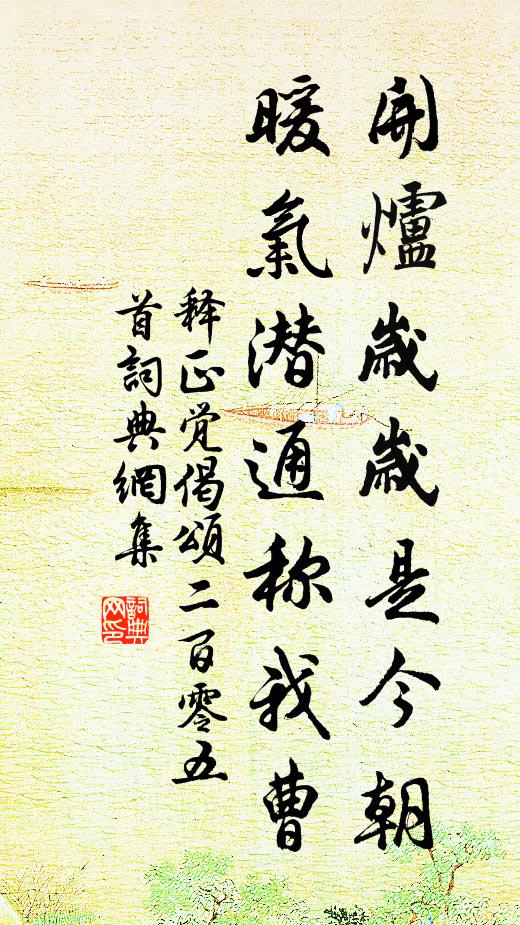 開爐歲歲是今朝
暖氣潜通称我曹
释正觉偈頌二百零五
首詞典網集
詞典
网印